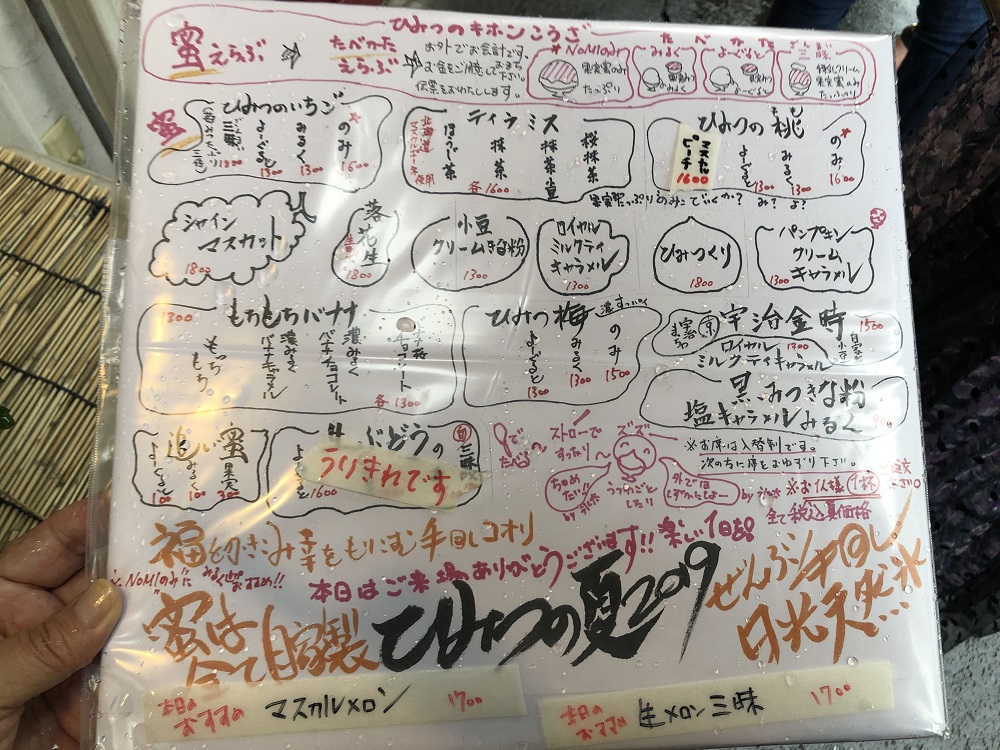 ひみつのキホンこうざ
蜜えらぶ
たべかた
えらぶ
お外でお会計です。
お金をご用意しておまち下さい。
伝票をおわたしします。
NOMIのみ
果実蜜のみ
たっぷり
たべかた
みるく
よーぐると
三昧
果実蜜のみ
たっぷり
蜜
ひみつのいちご
のみ 1600
みるく 1300
よーぐると 1300
三昧 1800
ティラミス
桜抹茶
抹茶小豆
抹茶
ほうじ茶
各1600
北海道
マスカルポーネ使用
ひみつの桃
のみ 1600
みるく 1300
よーぐると 1300
マスカルピーチ 1600
果実蜜たっぷりのみでいくか? み? よ?
シャイン
マスカット
1800
落花生
1800
小豆
クリームきな粉
1300
ロイヤル
ミルクティ
キャラメル
1300
ひみつくり
1800
パンプキン
クリーム
キャラメル
1300
もちもちバナナ
1300
もっちもち。
濃みるく
バナナキャラメル
濃みるく
バナナチョコレート
各1300
ひみつ梅
濃すっぱイ
のみ 1500
みるく 1300
よーぐると 1300
京 宇治金時 1500
自家製小豆
ロイヤル 1300
ミルクティキャラメル
黒みつきな粉
塩キャラメルみるく
追い蜜
果実 300
みるく 100
よーぐると 100
ぶどうの
旬
三昧
1600
うりきれです
ストローで
すったり〜
ズズー
つめたい!
うつわごと
したり
外では
しずかにしよー
※お席は入替制です。
次の方に席をおゆずり下さい。
※お1人様1杯ご注文下さい
全て税込価格
福 幸をもにむ手回しコオリ
NOMI"のみ"に みるく おすすめ!!
本日はご来場ありがとうございます!! 楽しい1日を
蜜は
全て自家製
ひみつの夏2019
ぜんぶ手回し!
日光天然氷
本日の
おすすめ
マスカルメロン 1700
本日の
おすすめ
生メロン三昧 1700